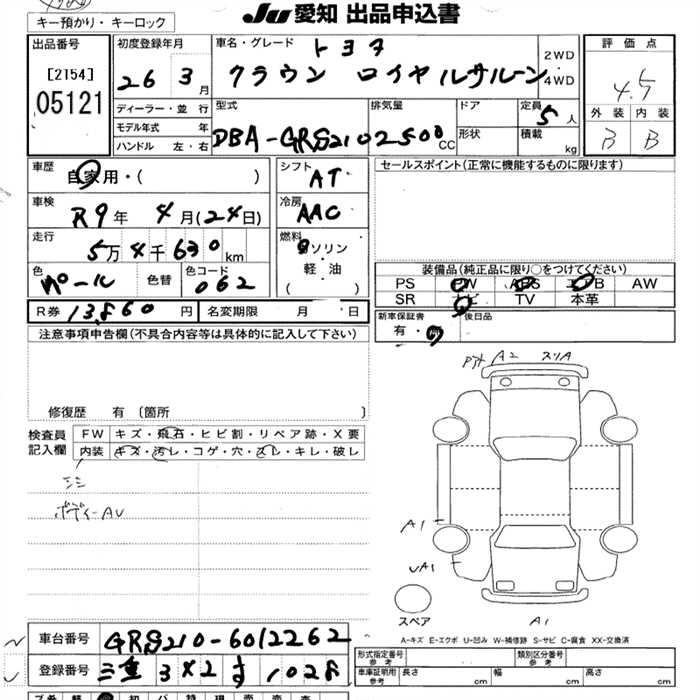 Ju 愛知 出品申込書
キー預かり・キーロック
出品番号
[2154]
05121
初度登録年月
26 3月
ディーラー・並 行
モデル年式 年
ハンドル 左・右
車名・グレード トヨタ
クラウン ロイヤルサルーン
2WD
4WD
型式
DBA-GRS210
排気量
2500 CC
ドア
形状
定員
5人
積載
kg
評価点
4.5
外装 内装
B B
車歴 自家用・( )
シフト AT
車検 R9年 4月(24日)
冷房 AAC
走行 5万4千630km
燃料 ガソリン・軽・油
( )
色 パール 色替 色コード 062
R券 13,860円 名変期限 月 日
セールスポイント(正常に機能するものに限ります)
装備品(純正品に限り○をつけてください)
PS PW ABS エアB AW
SR ナビ TV 本革
新車保証書
有・無
後日品
注意事項申告欄(不具合内容等は具体的に記入して下さい)
修復歴 有〔箇所 〕
検査員
記入欄
FW キズ・飛石・ヒビ割・リペア跡・X要
内装 キズ・汚レ・コゲ・穴・スレ・キレ・破レ
ボディーAU
A2 スリA
A1
UA1
A1
スペア
A-キズ E-エクボ U-凹み W-補修跡 S-サビ C-腐食 XX-交換済
車台番号 GRS210-6012262
登録番号 三重 3×2 す 1028
形式指定番号
参考
類別区分番号
参考
車庫証明用
参考
長さ cm 幅 cm 高さ cm